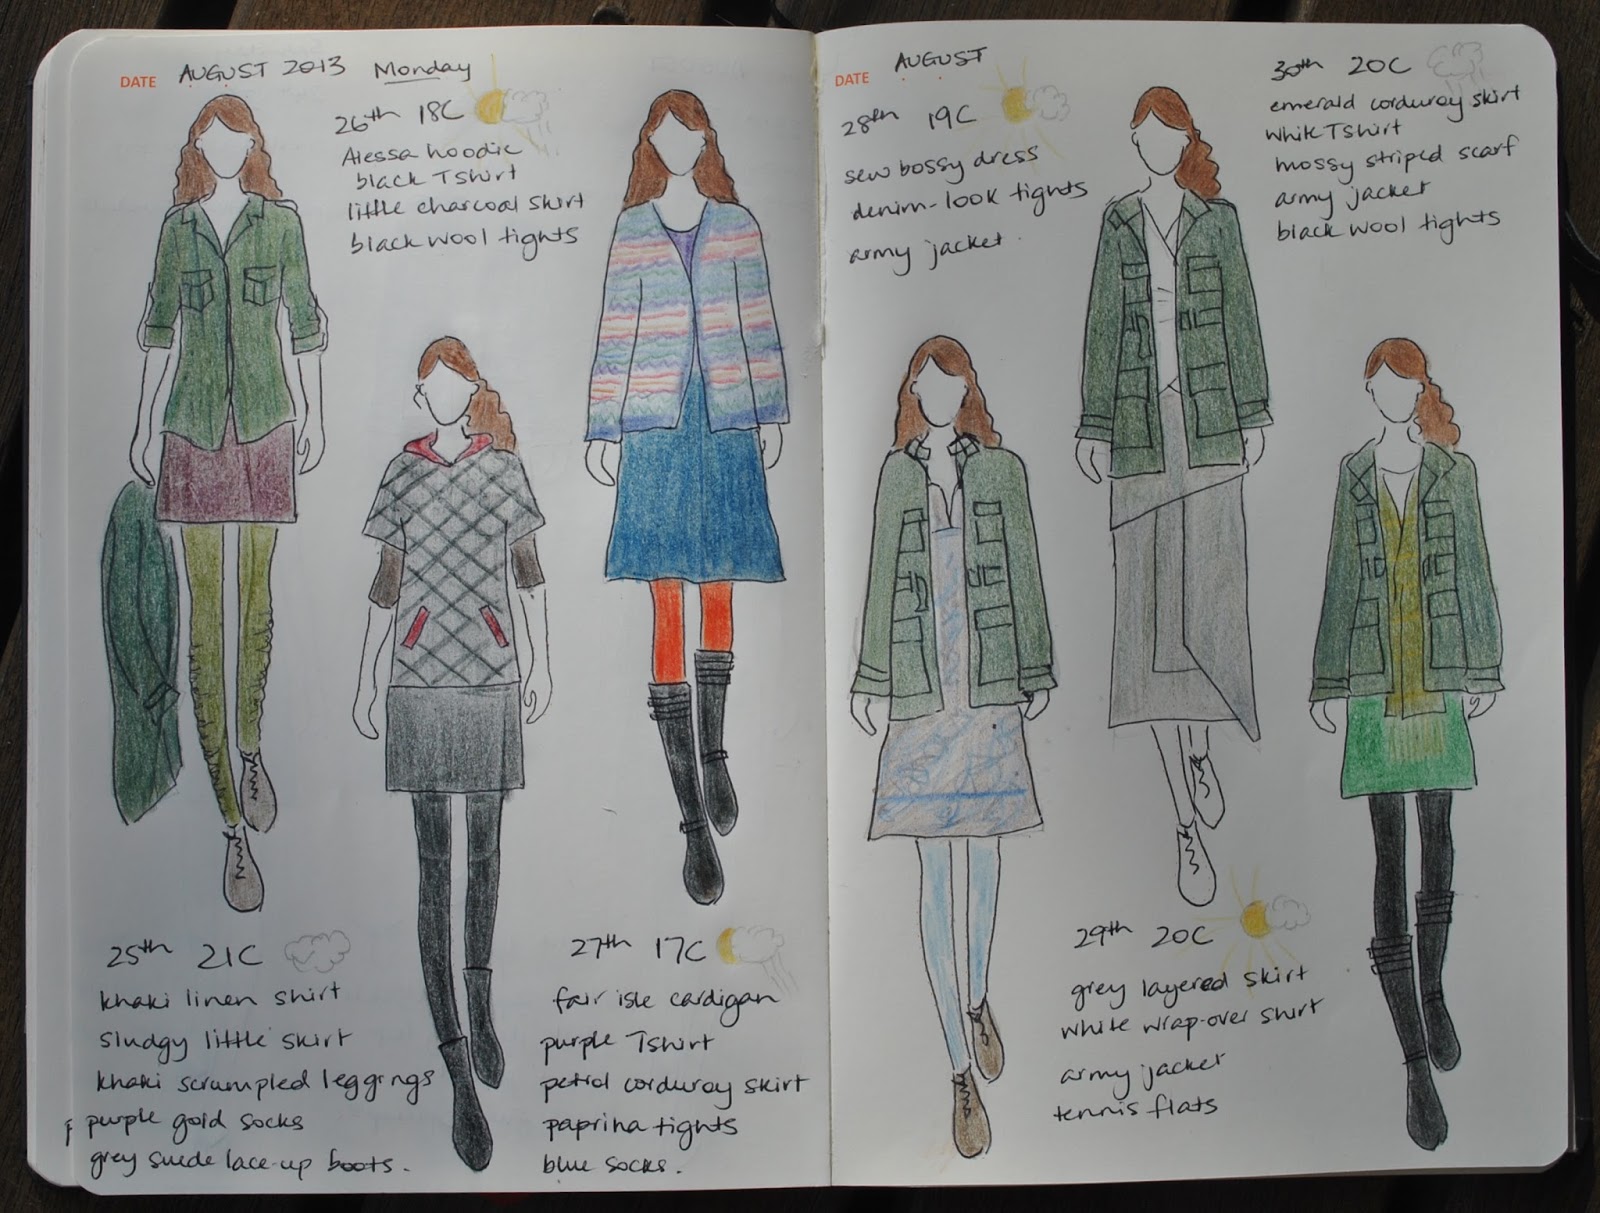 DATE AUGUST 2013 Monday
26th 18C
Alessa hoodie
black Tshirt
little charcoal skirt
black wool tights
25th 21C
khaki linen shirt
sludgy little skirt
khaki scrumpled leggings
purple gold socks
grey suede lace-up boots.
27th 17C
fair isle cardigan
purple Tshirt
petrol corduroy skirt
paprika tights
blue socks.
DATE AUGUST
28th 19C
sew bossy dress
denim-look tights
army jacket.
30th 20C
emerald corduroy skirt
white Tshirt
mossy striped scarf
army jacket
black wool tights
29th 20C
grey layered skirt
white wrap-over shirt
army jacket
tennis flats